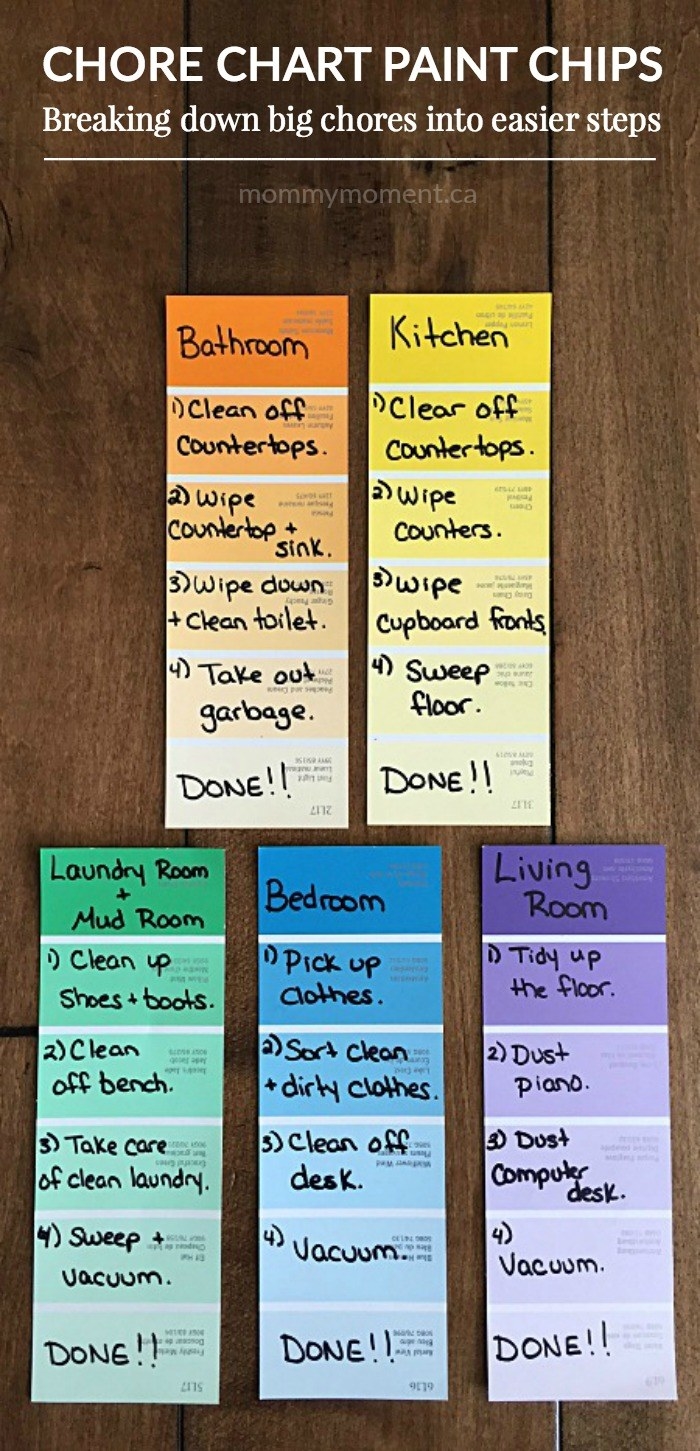 CHORE CHART PAINT CHIPS
Breaking down big chores into easier steps
mommymoment.ca
Bathroom
1) Clean off
countertops.
2) Wipe
countertop +
sink.
3) Wipe down
+ clean toilet.
4) Take out
garbage.
DONE!!
2L17
Kitchen
1) Clear off
countertops.
2) Wipe
counters.
3) Wipe
cupboard fronts.
4) Sweep
floor.
DONE!!
3L17
Laundry Room
+
Mud Room
1) Clean up
shoes + boots.
2) Clean
off bench.
3) Take care
of clean laundry.
4) Sweep +
vacuum.
DONE!!
5L17
Bedroom
1) Pick up
clothes.
2) Sort clean
+ dirty clothes.
3) Clean off
desk.
4) Vacuum.
DONE!!
6L16
Living
Room
1) Tidy up
the floor.
2) Dust
piano.
3) Dust
computer
desk.
4)
Vacuum.
DONE!!